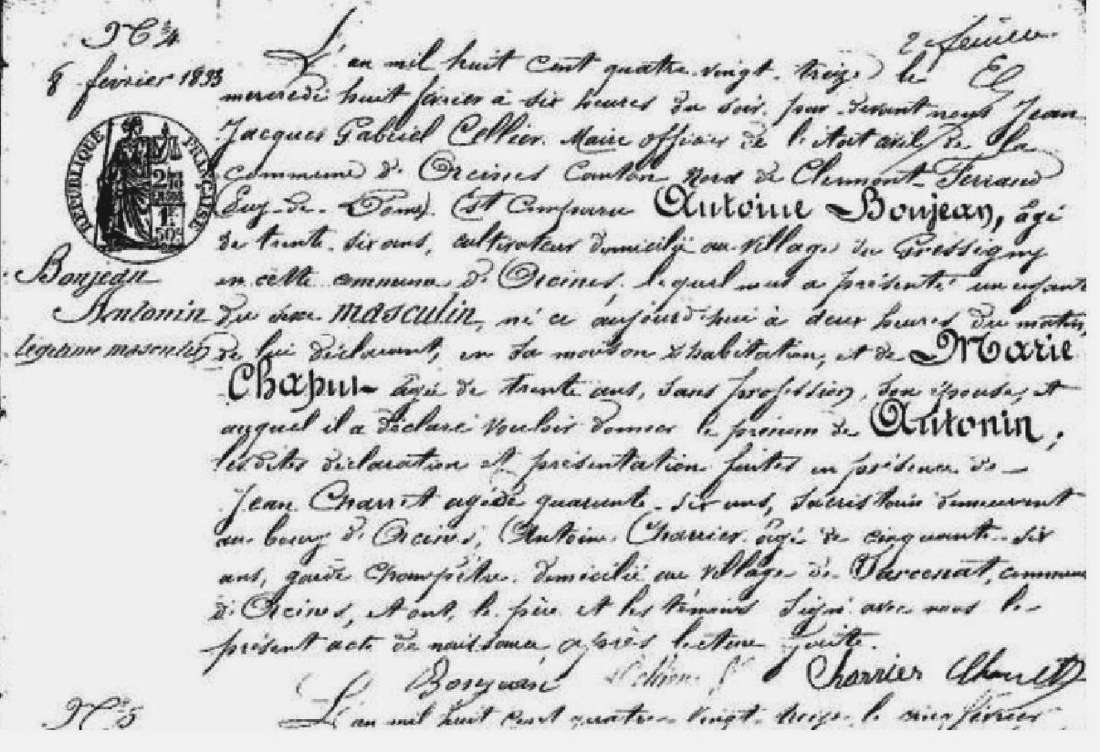 N° 4
8 février 1893
2e feuille
L'an mil huit cent quatre-vingt-treize le
mercredi huit février à six heures du soir par-devant nous Jean
Jacques Gabriel Cellier Maire officier de l'état civil de la
Commune d'Orcines Canton Nord de Clermont-Ferrand
(Puy-de-Dôme). Est comparu Antoine Bonjean, âgé
de trente-six ans, cultivateur domicilié au village de Fressigny
en cette commune d'Orcines, lequel nous a présenté un enfant
du sexe masculin, né ce aujourd'hui à deux heures du matin,
de lui déclarant, en sa maison d'habitation, et de Marie
Chaput âgée de trente ans, sans profession, son épouse, et
auquel il a déclaré vouloir donner le prénom de Antonin,
lesdites déclaration et présentation faites en présence de
Jean Charret agé de quarante-six ans, sacristain demeurant
au bourg d'Orcines, Antoine Charrier âgé de cinquante-six
ans, garde champêtre domicilié au village de Ternant, commune
d'Orcines, et ont, le père et les témoins signé avec nous le
présent acte de naissance après lecture faite.
Bonjean Cellier Charrier Charret
RÉPUBLIQUE FRANÇAISE
Bonjean
Antonin
légitime masculin
N° 5
L'an mil huit cent quatre-vingt-treize le cinq février